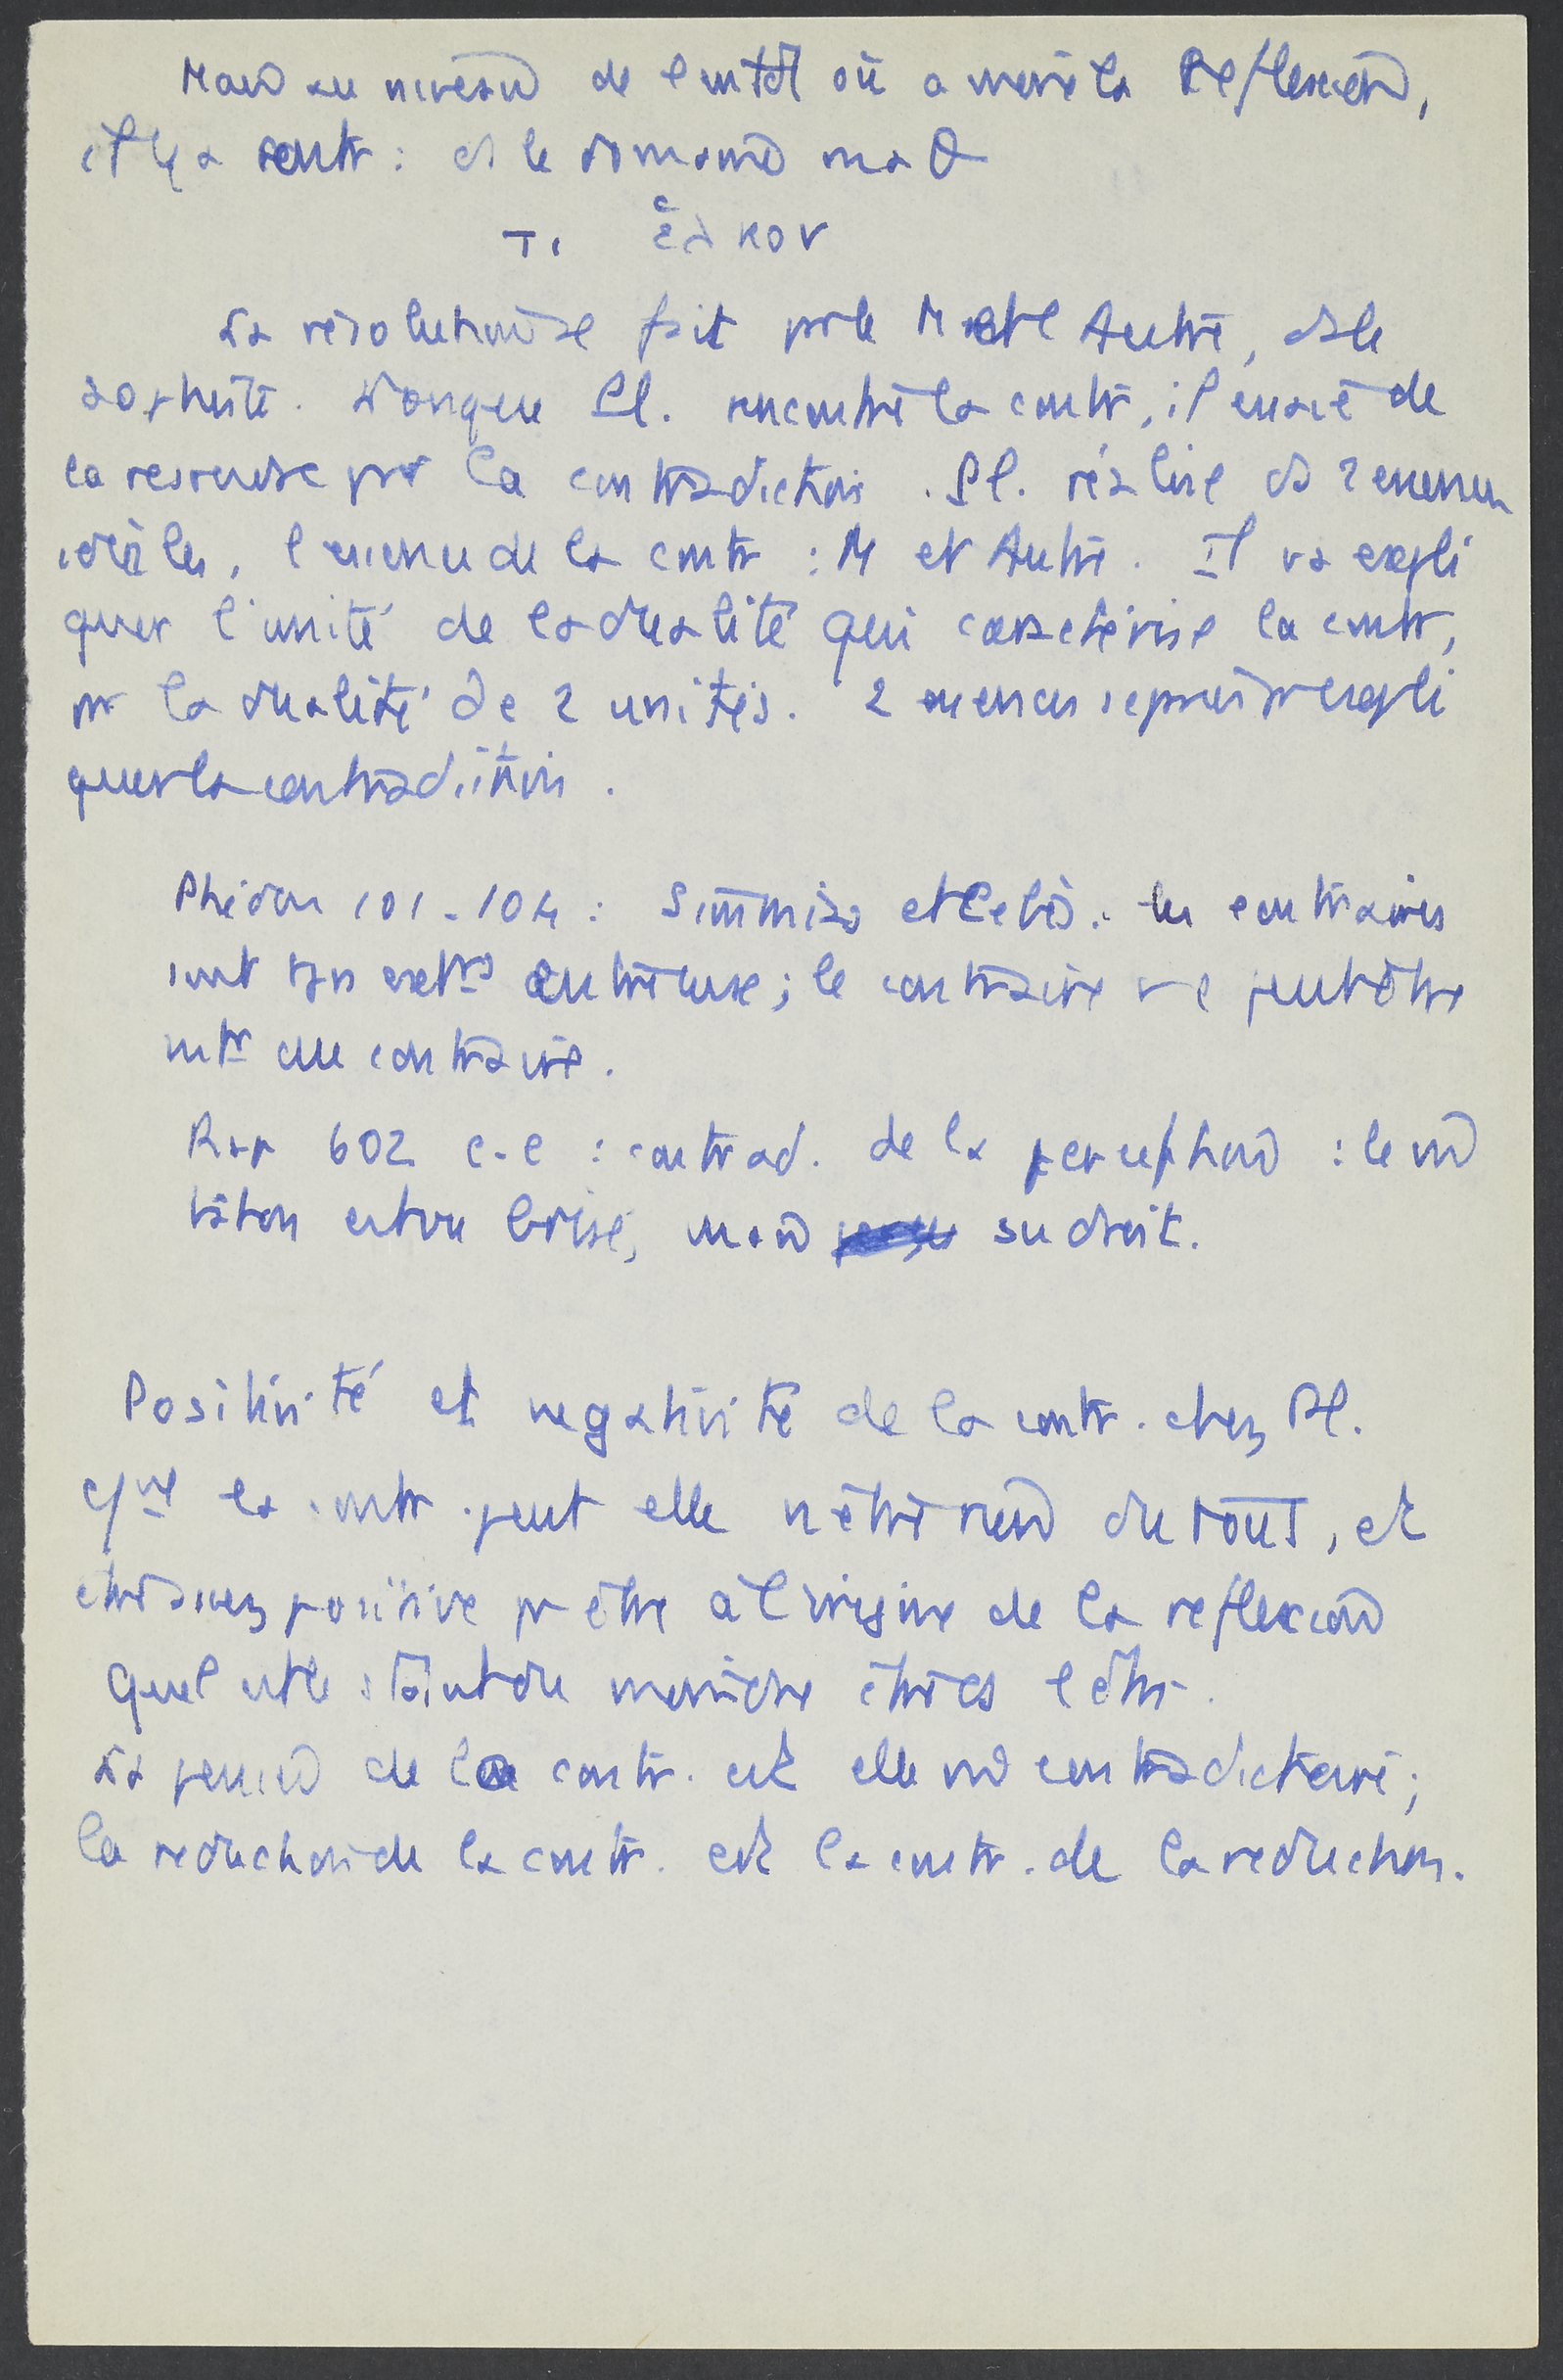 Mais au niveau de l'intell où a mené la Reflexion,
il y a contr : ds le domaine maθ
τι ἕλκον
La resolution se fait par le M et l'Autre, ds le
sophiste. Lorsque Pl. rencontre la contr, il essaie de
la resoudre par la contradiction. Pl. réalise ds 2 essences
idéales, l'essence de la contr : M et Autre. Il va expli
quer l'unité de la dualité qui caractérise la contr,
par la dualité de 2 unités. 2 essences separées pr expli
quer la contradiction.
Phédon 101-104 : Simmias et Cebès. les contraires
sont entre eux ; le contraire ne peut être
un contraire.
Rep 602 c-e : contrad. de la perception : le
bâton est vu brisé, mais su droit.
Positivité et negativité de la contr. chez Pl.
la contr. peut elle n'être rien du tout, et
être assez positive pr être à l'origine de la reflexion
Quel est le statut du moindre être ds l'être.
La pensée de la contr. est elle contradictoire ;
la reduction de la contr. est la contr. de la reduction.